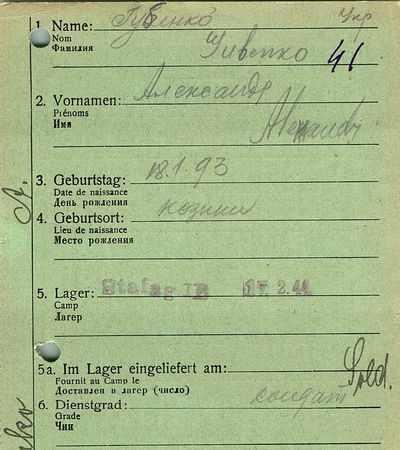 1. Name: Губенко Укр
Nom
Фамилия
41
2. Vornamen: Александр
Prénoms
Имя
3. Geburtstag: 18.1.93
Date de naissance
День рождения
4. Geburtsort:
Lieu de naissance
Место рождения
5. Lager: Stalag IB 17.2.44
Camp
Лагерь
5a. Im Lager eingeliefert am:
Fournit au Camp le
Доставлен в лагер (число)
Sold.
6. Dienstgrad: солдат
Grade
Чин